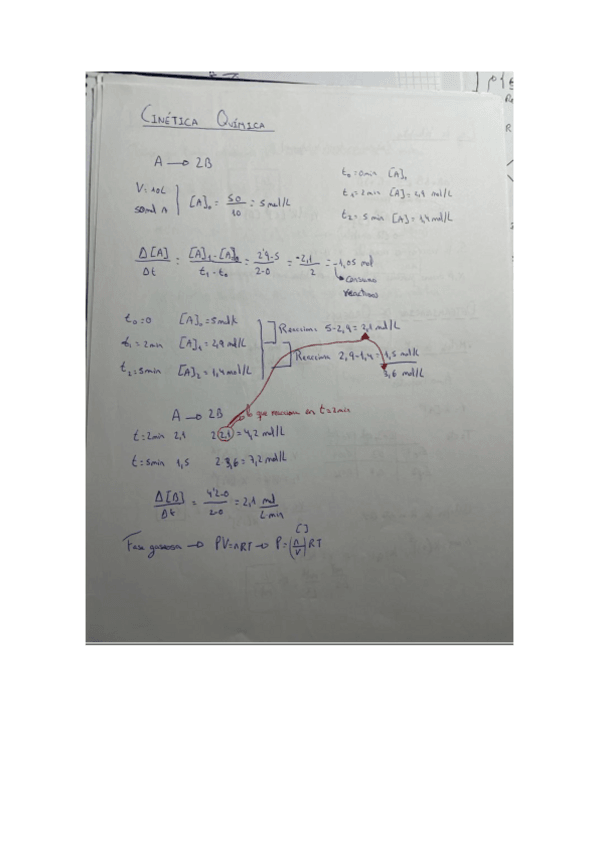 CINÉTICA QUÍMICA
A → 2B
V = 10L
50 mol A
[A]₀ = 50/10 = 5 mol/L
t₀ = 0 min [A]₀
t₁ = 2 min [A] = 2,9 mol/L
t₂ = 5 min [A] = 1,4 mol/L
Δ[A]/Δt = [A]₁ - [A]₀ / t₁ - t₀ = 2'9-5 / 2-0 = -2,1/2 = -1,05 mol
consumo
reactivo
t₀ = 0 [A]₀ = 5 mol/L
t₁ = 2 min [A]₁ = 2,9 mol/L
t₂ = 5 min [A]₂ = 1,4 mol/L
Reacciona 5-2,9 = 2,1 mol/L
Reacciona 2,9-1,4 = 1,5 mol/L
3,6 mol/L
A → 2B
que reacciona en t = 2 min
t = 2 min 2,1 2·2,1 = 4,2 mol/L
t = 5 min 1,5 2·3,6 = 7,2 mol/L
Δ[B]/Δt = 4'2-0 / 2-0 = 2,1 mol/L·min
[ ]
Fase gaseosa → PV = nRT → P = (n/V) RT